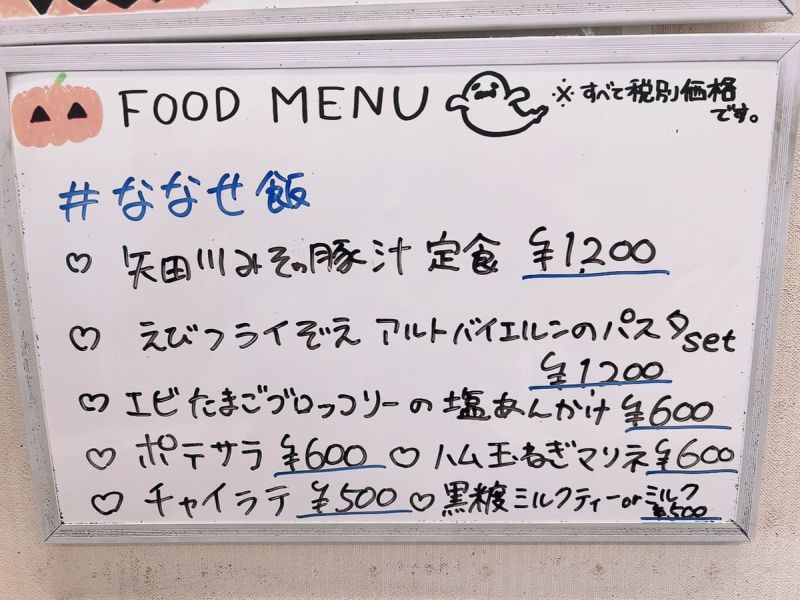 FOOD MENU ※すべて税別価格
です。
#ななせ飯
♡ 矢田川みその豚汁 定食 ¥1,200
♡ えびフライぞえ アルトバイエルンのパスタset
¥1,200
♡ エビたまごブロッコリーの塩あんかけ ¥600
♡ ポテサラ ¥600 ♡ ハム玉ねぎマリネ ¥600
♡ チャイラテ ¥500 ♡ 黒糖ミルクティーorミルク
¥500